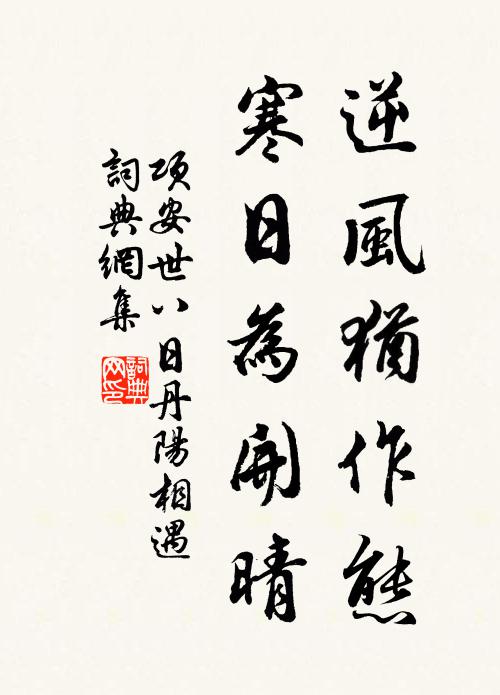 逆風猶作態
寒日為開晴
項安世八日丹陽相遇
詞典網集
詞典
网印